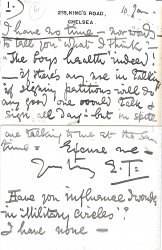 1.
10. Jan.
215, KING'S ROAD,
CHELSEA.
I have no time – nor words
to tell you what I think –
The boys health indeed!
– if there's any use in talking
if signing petitions will do
any good one would talk &
sign all day! but in spite
are talking to me at the same
time – Excuse me –
E. T.
Have you influence
in "Military circles"?
I have none –